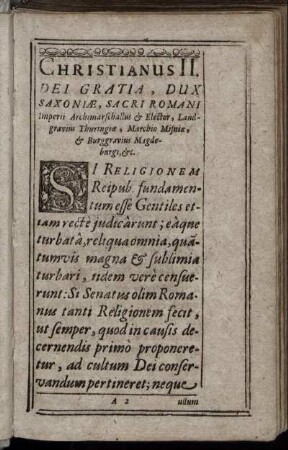 CHRISTIANUS II.
DEI GRATIA, DUX
SAXONIÆ, SACRI ROMANI
Imperii Archimarschallus & Elector, Land-
gravius Thuringiæ, Marchio Misniæ,
& Burggravius Magde-
burgi, &c.
SI RELIGIONEM
Reipub. fundamen-
tum esse Gentiles et-
iam rectè judicârunt; eâque
turbatâ, reliqua omnia, quã-
tumvis magna & sublimia
turbari, iidem verè censue-
runt: Si Senatus olim Roma-
nus tanti Religionem fecit,
ut semper, quod in causis de-
cernendis primò proponere-
tur, ad cultum Dei conser-
vandum pertineret; neque
A 2 ullum